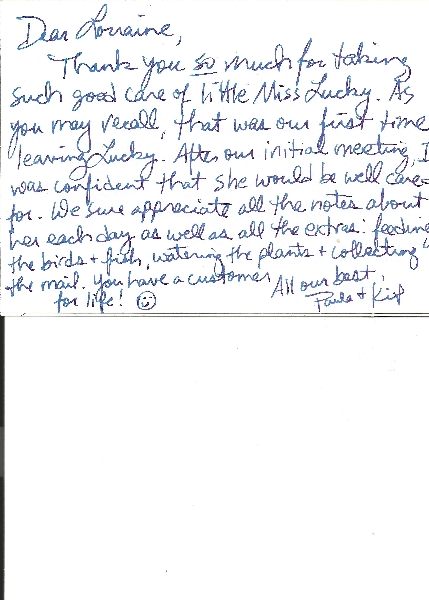 Dear Lorraine,
Thank you so much for taking
such good care of little Miss Lucky. As
you may recall, that was our first time
leaving Lucky. After our initial meeting, I
was confident that she would be well care-
for. We sure appreciate all the notes about
her each day as well as all the extras: feeding
the birds + fish, watering the plants + collecting
the mail. You have a customer
for life! ☺
All our best,
Paula +